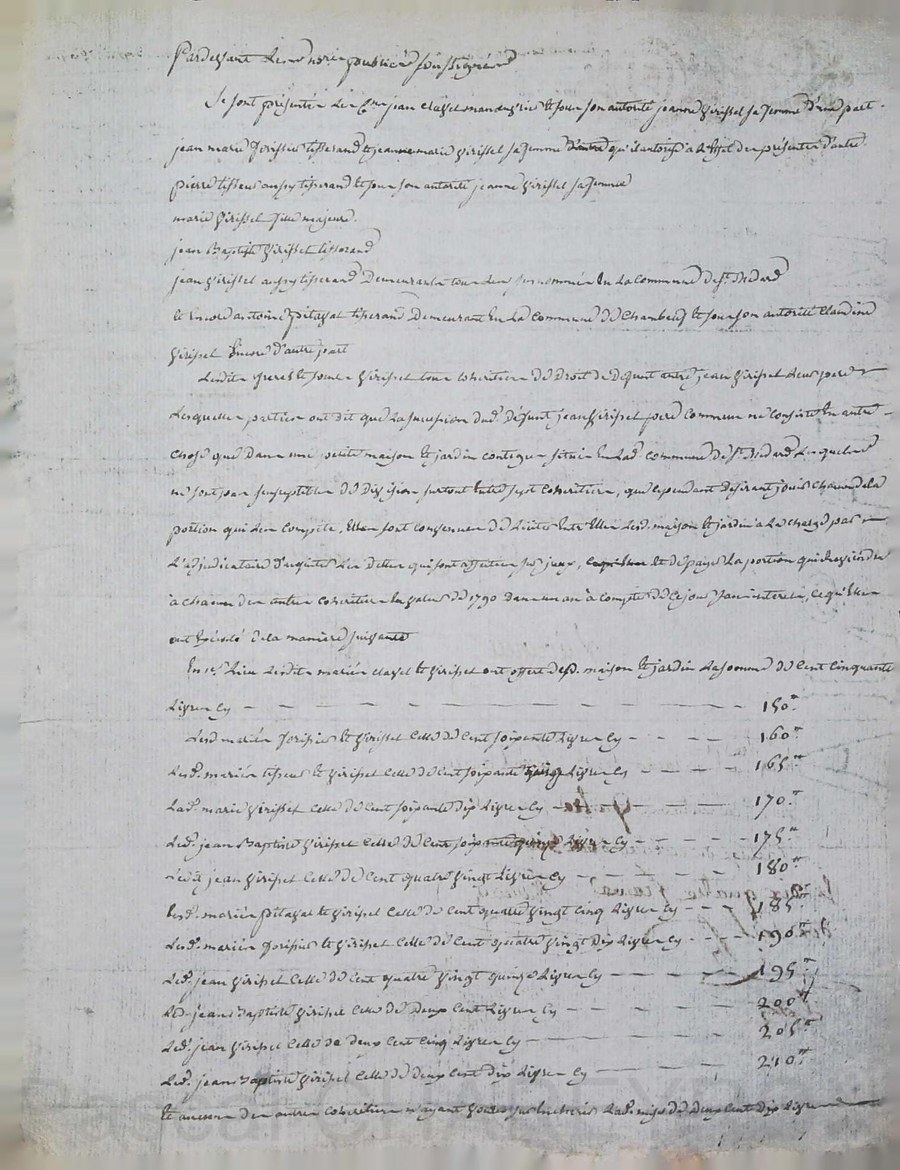 Pardevant Les nores publics soussignés
Se sont présentés Les Cens jean clavel et sous son autorité jeanne Virissel sa femme d'une part.
jean marie forissier tisserand et jeanne marie Virissel sa femme qu'il autorise à l'effet des présentes d'autre.
pierre tisseur aussy tisserand et sous son autorité jeanne Virissel sa femme
marie Virissel fille majeure.
jean Baptiste Virissel tisserand
jean Virissel aussy tisserand Demeurants tous Les susnommés En La Commune de St. Médard
et Encore antoine pitaval tisserand Demeurant En La Commune de Chambeuf et sous son autorité Claudine
Virissel Encore d'autre part
Lesdits freres et soeurs Virissel tous Cohéritiers de Droit de Défunt autre jean Virissel Leur pere
Lesquelles parties ont dit que La succession dud. Défunt jean Virissel pere commun ne consiste En autre
chose que Dans une petite maison et jardin contigus situés En Lad. commune de St. Médard Lesquels
ne sont pas susceptibles de Division surtout Entre sept Cohéritiers, que cependant Desirant jouir chacun de la
portion qui Leur Compète, Elles sont convenues de Liciter Entr'Elles Lesd. maison et jardin à La charge par
L'adjudicataire d'acquiter Les Dettes qui sont affectées sur yceux, et de payer La portion qui reviendra
à chacun des autres cohéritiers En valeur de 1790 Dans un an à compter de ce jour sans interets, ce qu'Elles
ont Exécuté de la maniere suivante
En 1er. Lieu Lesdits mariés clavel et Virissel ont offert desd. maison et jardin La somme de Cent Cinquante
Livres Cy - - - - - - 150tt
Lesd. mariés forissier et Virissel Celle de Cent soixante Livres Cy - - - 160tt
Lesd. mariés tisseur et Virissel Celle de Cent soixante Livres Cy - - - 165tt
Lad. marie Virissel Celle de Cent soixante Dix Livres Cy - - - 170tt
Led. jean Baptiste Virissel Celle de Cent soixante quinze Livres Cy - - - 175tt
Ledit jean Virissel Celle de Cent quatre Vingt Livres Cy - - - 180tt
Lesd. mariés pitaval et Virissel Celle de Cent quatre Vingt Cinq Livres Cy - - 185tt
Lesd. mariés forissier et Virissel Celle de Cent quatre Vingt Dix Livres Cy - - 190tt
Led. jean Virissel Celle de Cent quatre Vingt quinze Livres Cy - - - 195tt
Led. jean Baptiste Virissel Celle de Deux Cent Livres Cy - - - 200tt
Led. jean Virissel Celle de Deux Cent Cinq Livres Cy - - - 205tt
Led. jean Baptiste Virissel Celle de Deux Cent Dix Livres Cy - - - 210tt
Et aucun des autres Cohéritiers n'ayant voulu Lad. mise de Deux Cent Dix Livres